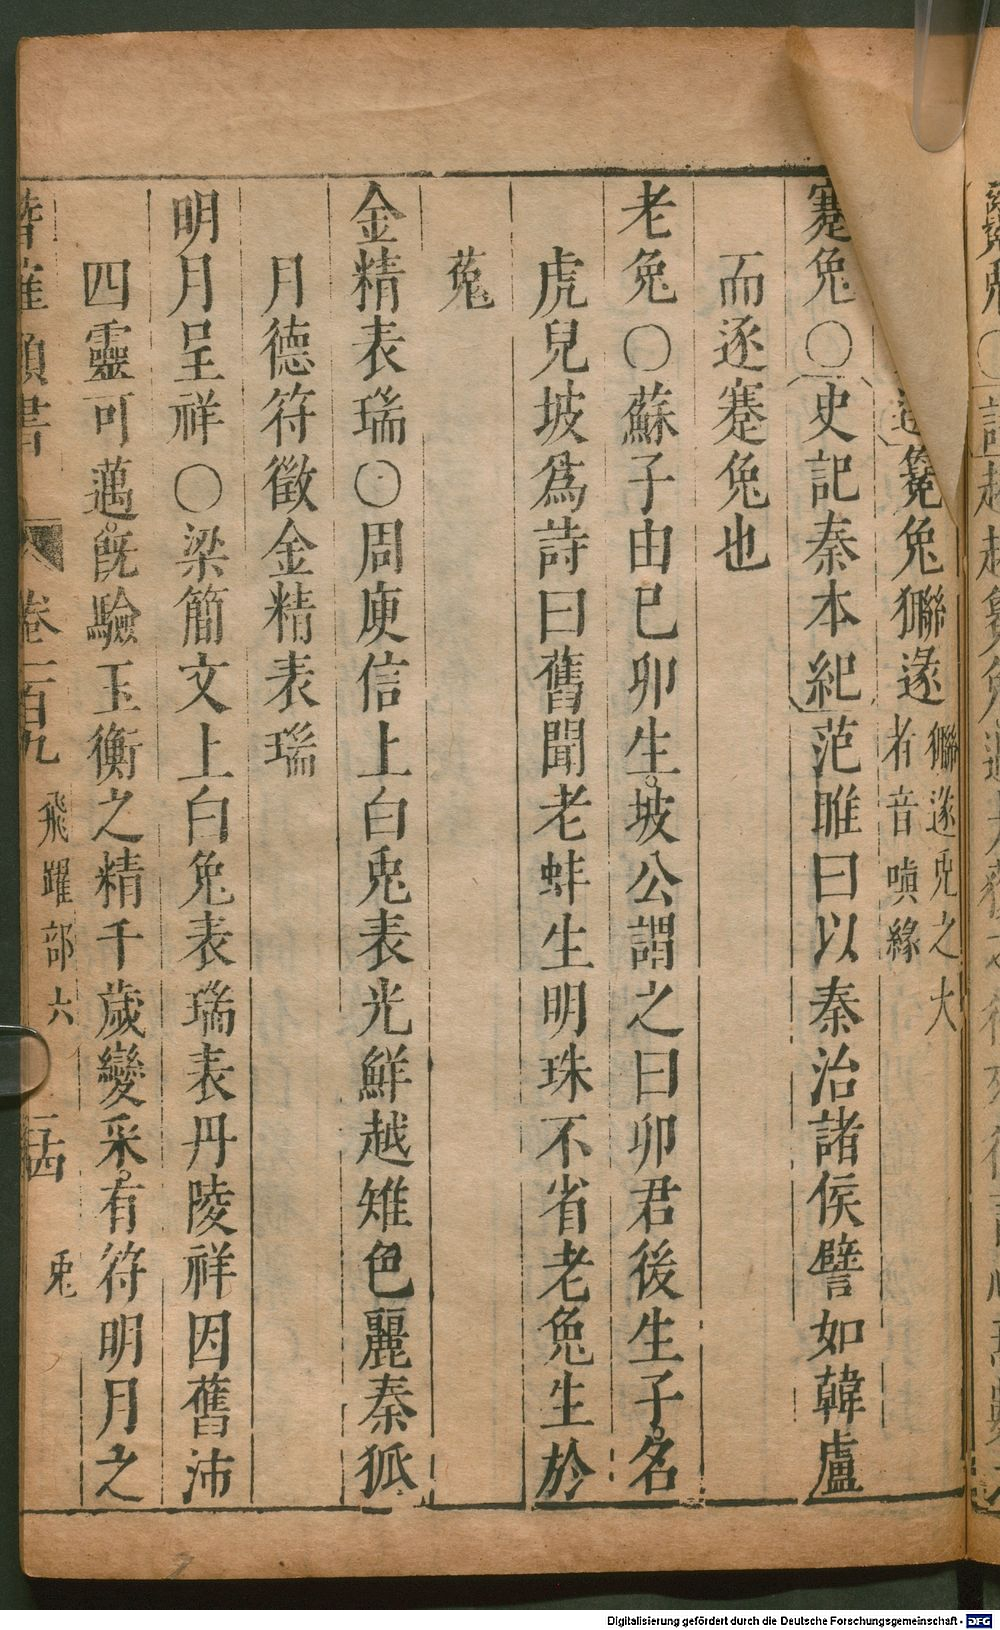 毚兔獬遂 獬遂兎之大
者音嗔緣
蹇兔○史記秦本紀范雎曰以秦治諸侯譬如韓盧
而逐蹇兔也
老兔○蘇子由巳卯生坡公謂之曰卯君後生子名
虎兒坡爲詩曰舊聞老蚌生明珠不省老兔生於
菟
金精表瑞○周庾信上白兎表光鮮越雉色麗秦狐
月德符徵金精表瑞
明月呈祥○梁簡文上白兔表瑞表丹陵祥因舊沛
四靈可邁旣驗玉衡之精千歲變采有符明月之
類書 卷一百九 飛躍部六 兎
Digitalisierung gefördert durch die Deutsche Forschungsgemeinschaft - DFG